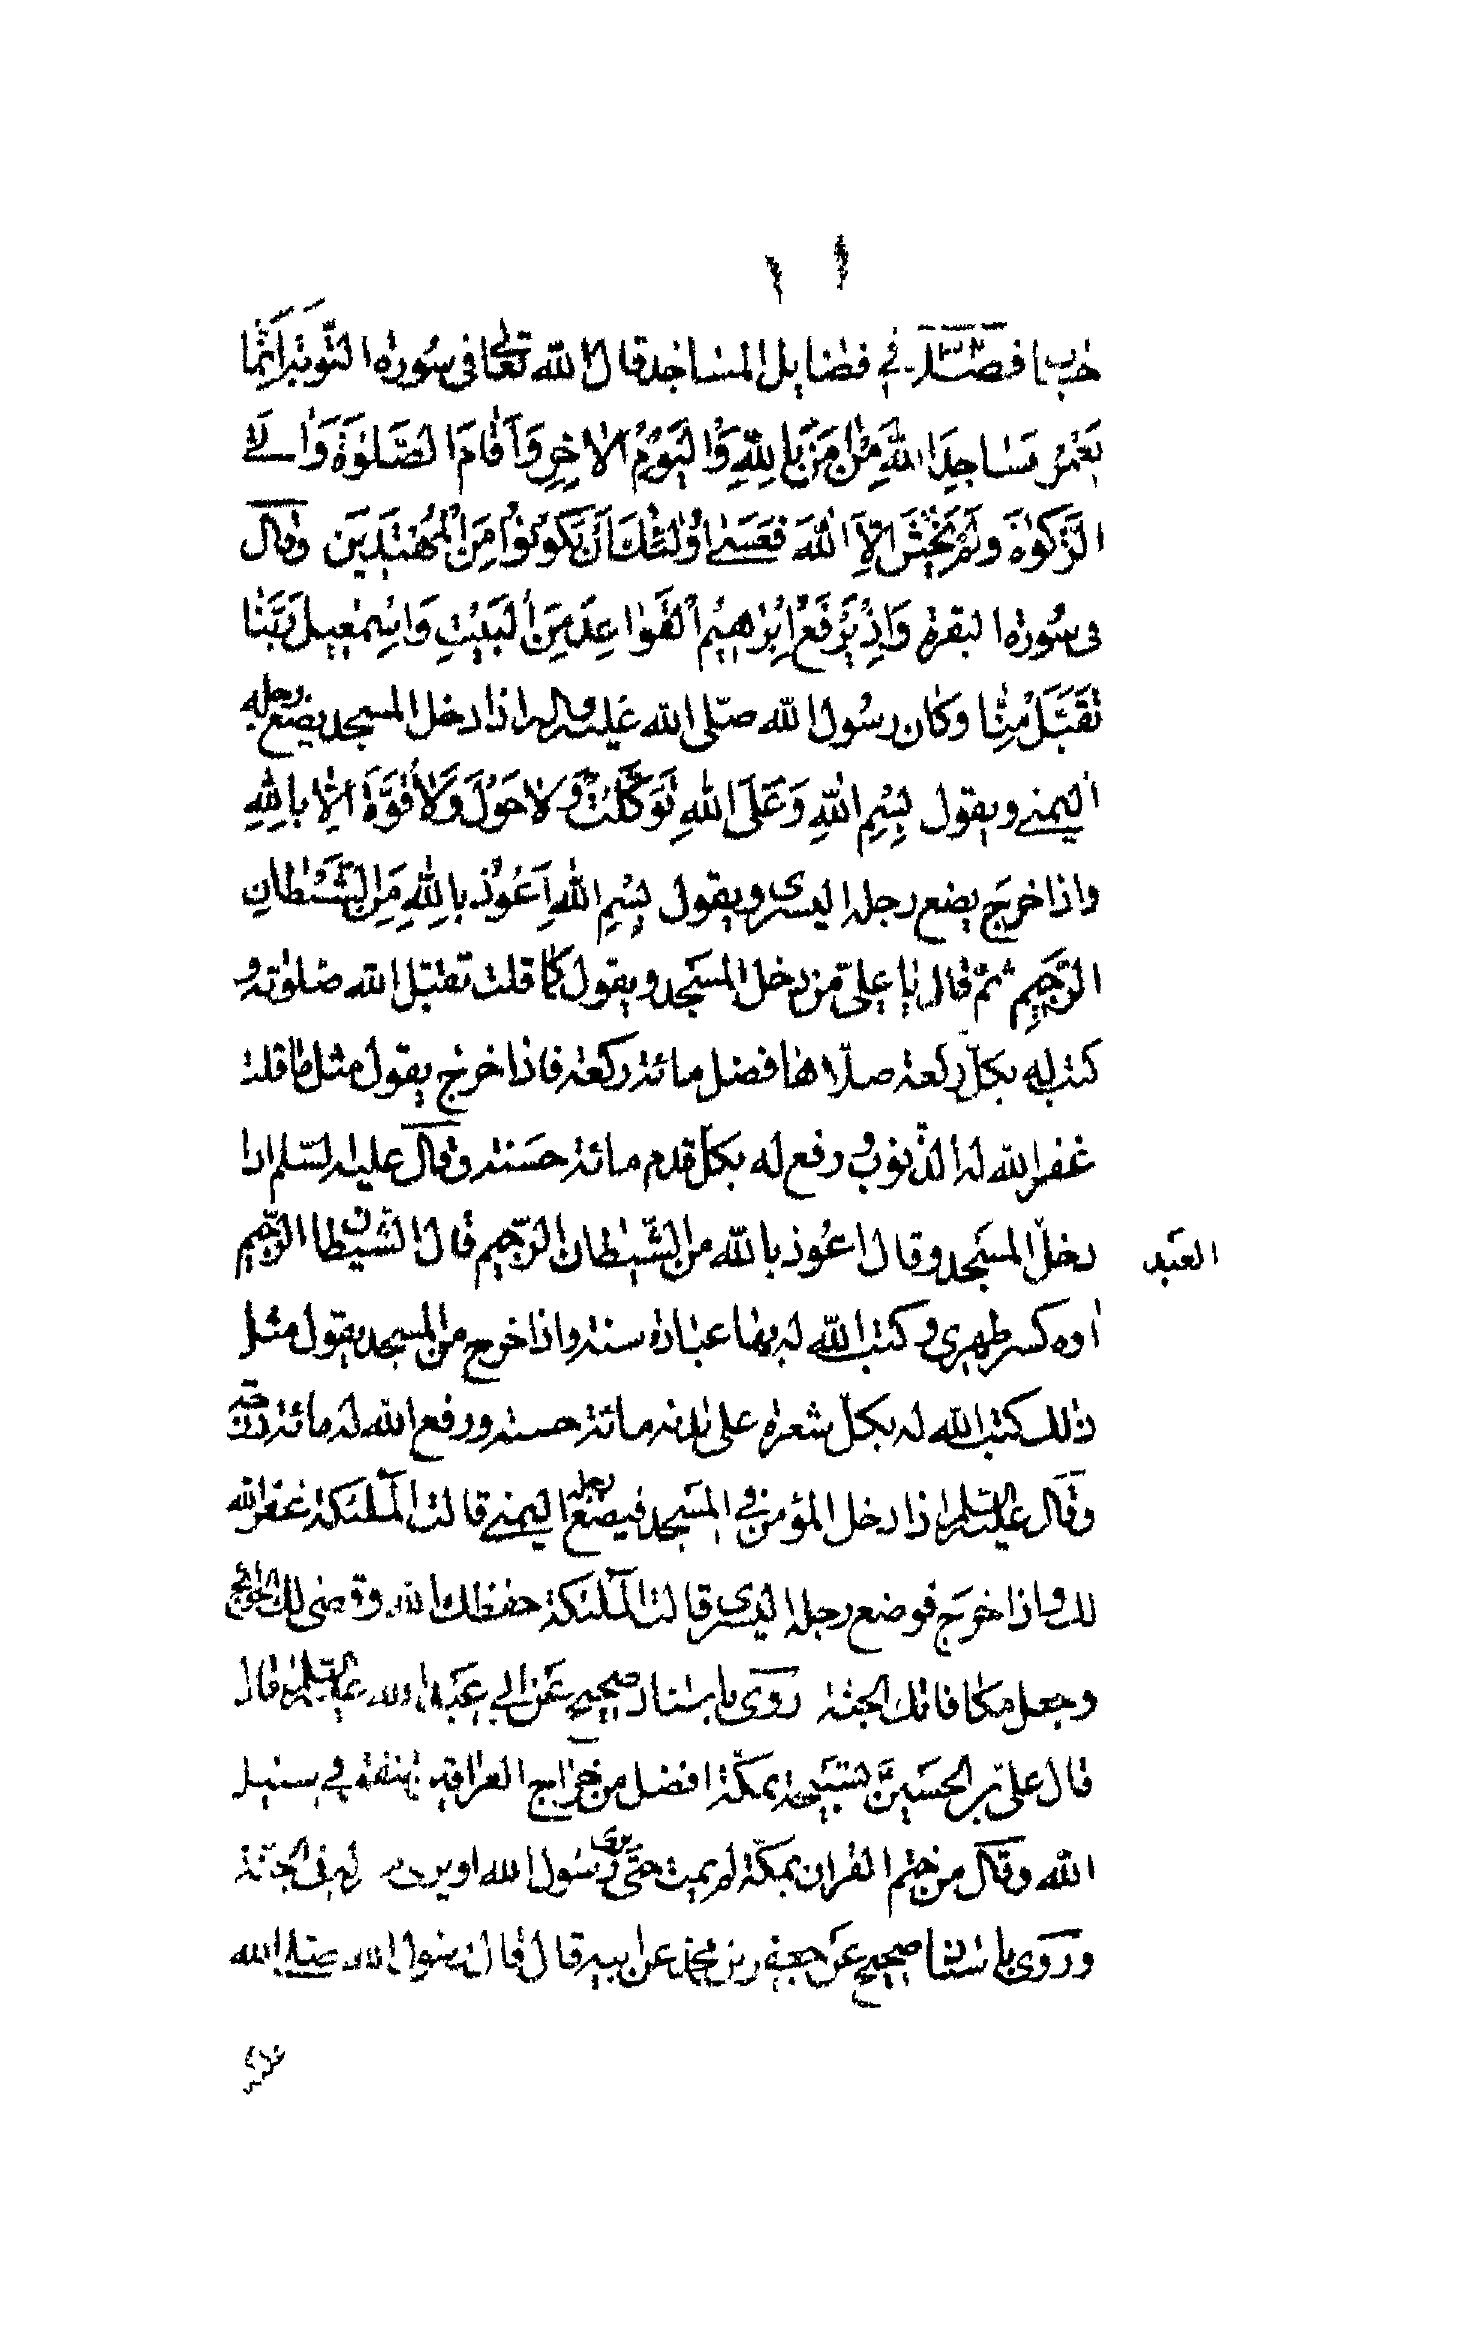 فصل في فضايل المساجد قال الله تعالى في سورة التوبة اِنَّمَا
يَعْمُرُ مَسَاجِدَ اللهِ مَنْ اٰمَنَ بِاللهِ وَالْيَوْمِ الْاٰخِرِ وَاَقَامَ الصَّلٰوةَ وَاٰتَى
الزَّكٰوةَ وَلَمْ يَخْشَ اِلَّا اللهَ فَعَسٰى اُولٰئِكَ اَنْ يَكُونُوا مِنَ الْمُهْتَدِينَ وقال
في سورة البقرة وَاِذْ يَرْفَعُ اِبْرٰهِيمُ الْقَوَاعِدَ مِنَ الْبَيْتِ وَاِسْمٰعِيلُ رَبَّنَا
تَقَبَّلْ مِنَّا وكان رسول الله صلّى الله عليه وآله اذا دخل المسجد يضع رجله
اليمنى ويقول بِسْمِ اللهِ وَعَلَى اللهِ تَوَكَّلْتُ وَلَا حَوْلَ وَلَا قُوَّةَ اِلَّا بِاللهِ
واذا خرج يضع رجله اليسرى ويقول بِسْمِ اللهِ اَعُوذُ بِاللهِ مِنَ الشَّيْطَانِ
الرَّجِيمِ ثم قال يا علي من دخل المسجد ويقول كما قلت تقبّل الله صلوته و
كتب له بكلّ ركعة صلّاها فضل مائة ركعة فاذا خرج يقول مثل ما قلت
غفر الله له الذنوب ورفع له بكل قدم مائة حسنة وقال عليه السّلم اذا
دخل المسجد وقال اعوذ بالله من الشّيطان الرّجيم قال الشّيطان الرّجيم
العبد
اوه كسر ظهري وكتب الله له بها عبادة سنة واذا خرج من المسجد يقول مثل
ذلك كتب الله له بكلّ شعرة على بدنه مائة حسنة ورفع الله له مائة درجة
وقال عليه السلم اذا دخل المؤمن في المسجد فيضع رجله اليمنى قالت الملئكة غفر الله
لك واذا خرج فوضع رجله اليسرى قالت الملئكة حفظك الله وقضى لك الحوائج
وجعل مكافاتك الجنة روى باسناد صحيح عن ابي عبد الله عليه السلم قال
قال علي بن الحسين تسبيحة بمكّة افضل من خراج العراقين ينفق في سبيل
الله وقال من ختم القران بمكّة لم يمت حتى يرى رسول الله او يرى له في الجنّة
وروى باسناد صحيح عن جعفر بن محمد عن ابيه قال قال رسول الله صلى الله